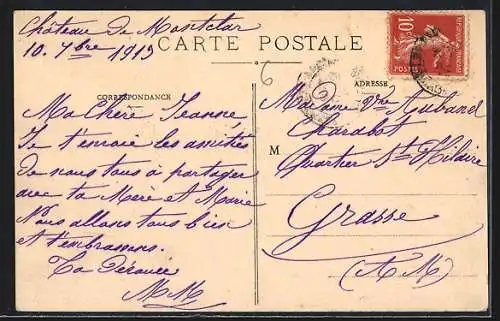 Château de Montclar
10. 7bre 1913
CARTE POSTALE
CORRESPONDANCE
Ma Chère Jeanne,
Je t'envoie les amitiés
de nous tous à partager
avec ta Mère et Marie
Nous allons tous bien
et t'embrassons.
Ta Dévouée
M M
6
ADRESSE
M
Madame Vve Aubanel
Charabot
Quartier St Hilaire
Grasse
(A M)
10c
POSTES
REPUBLIQUE FRANÇAISE